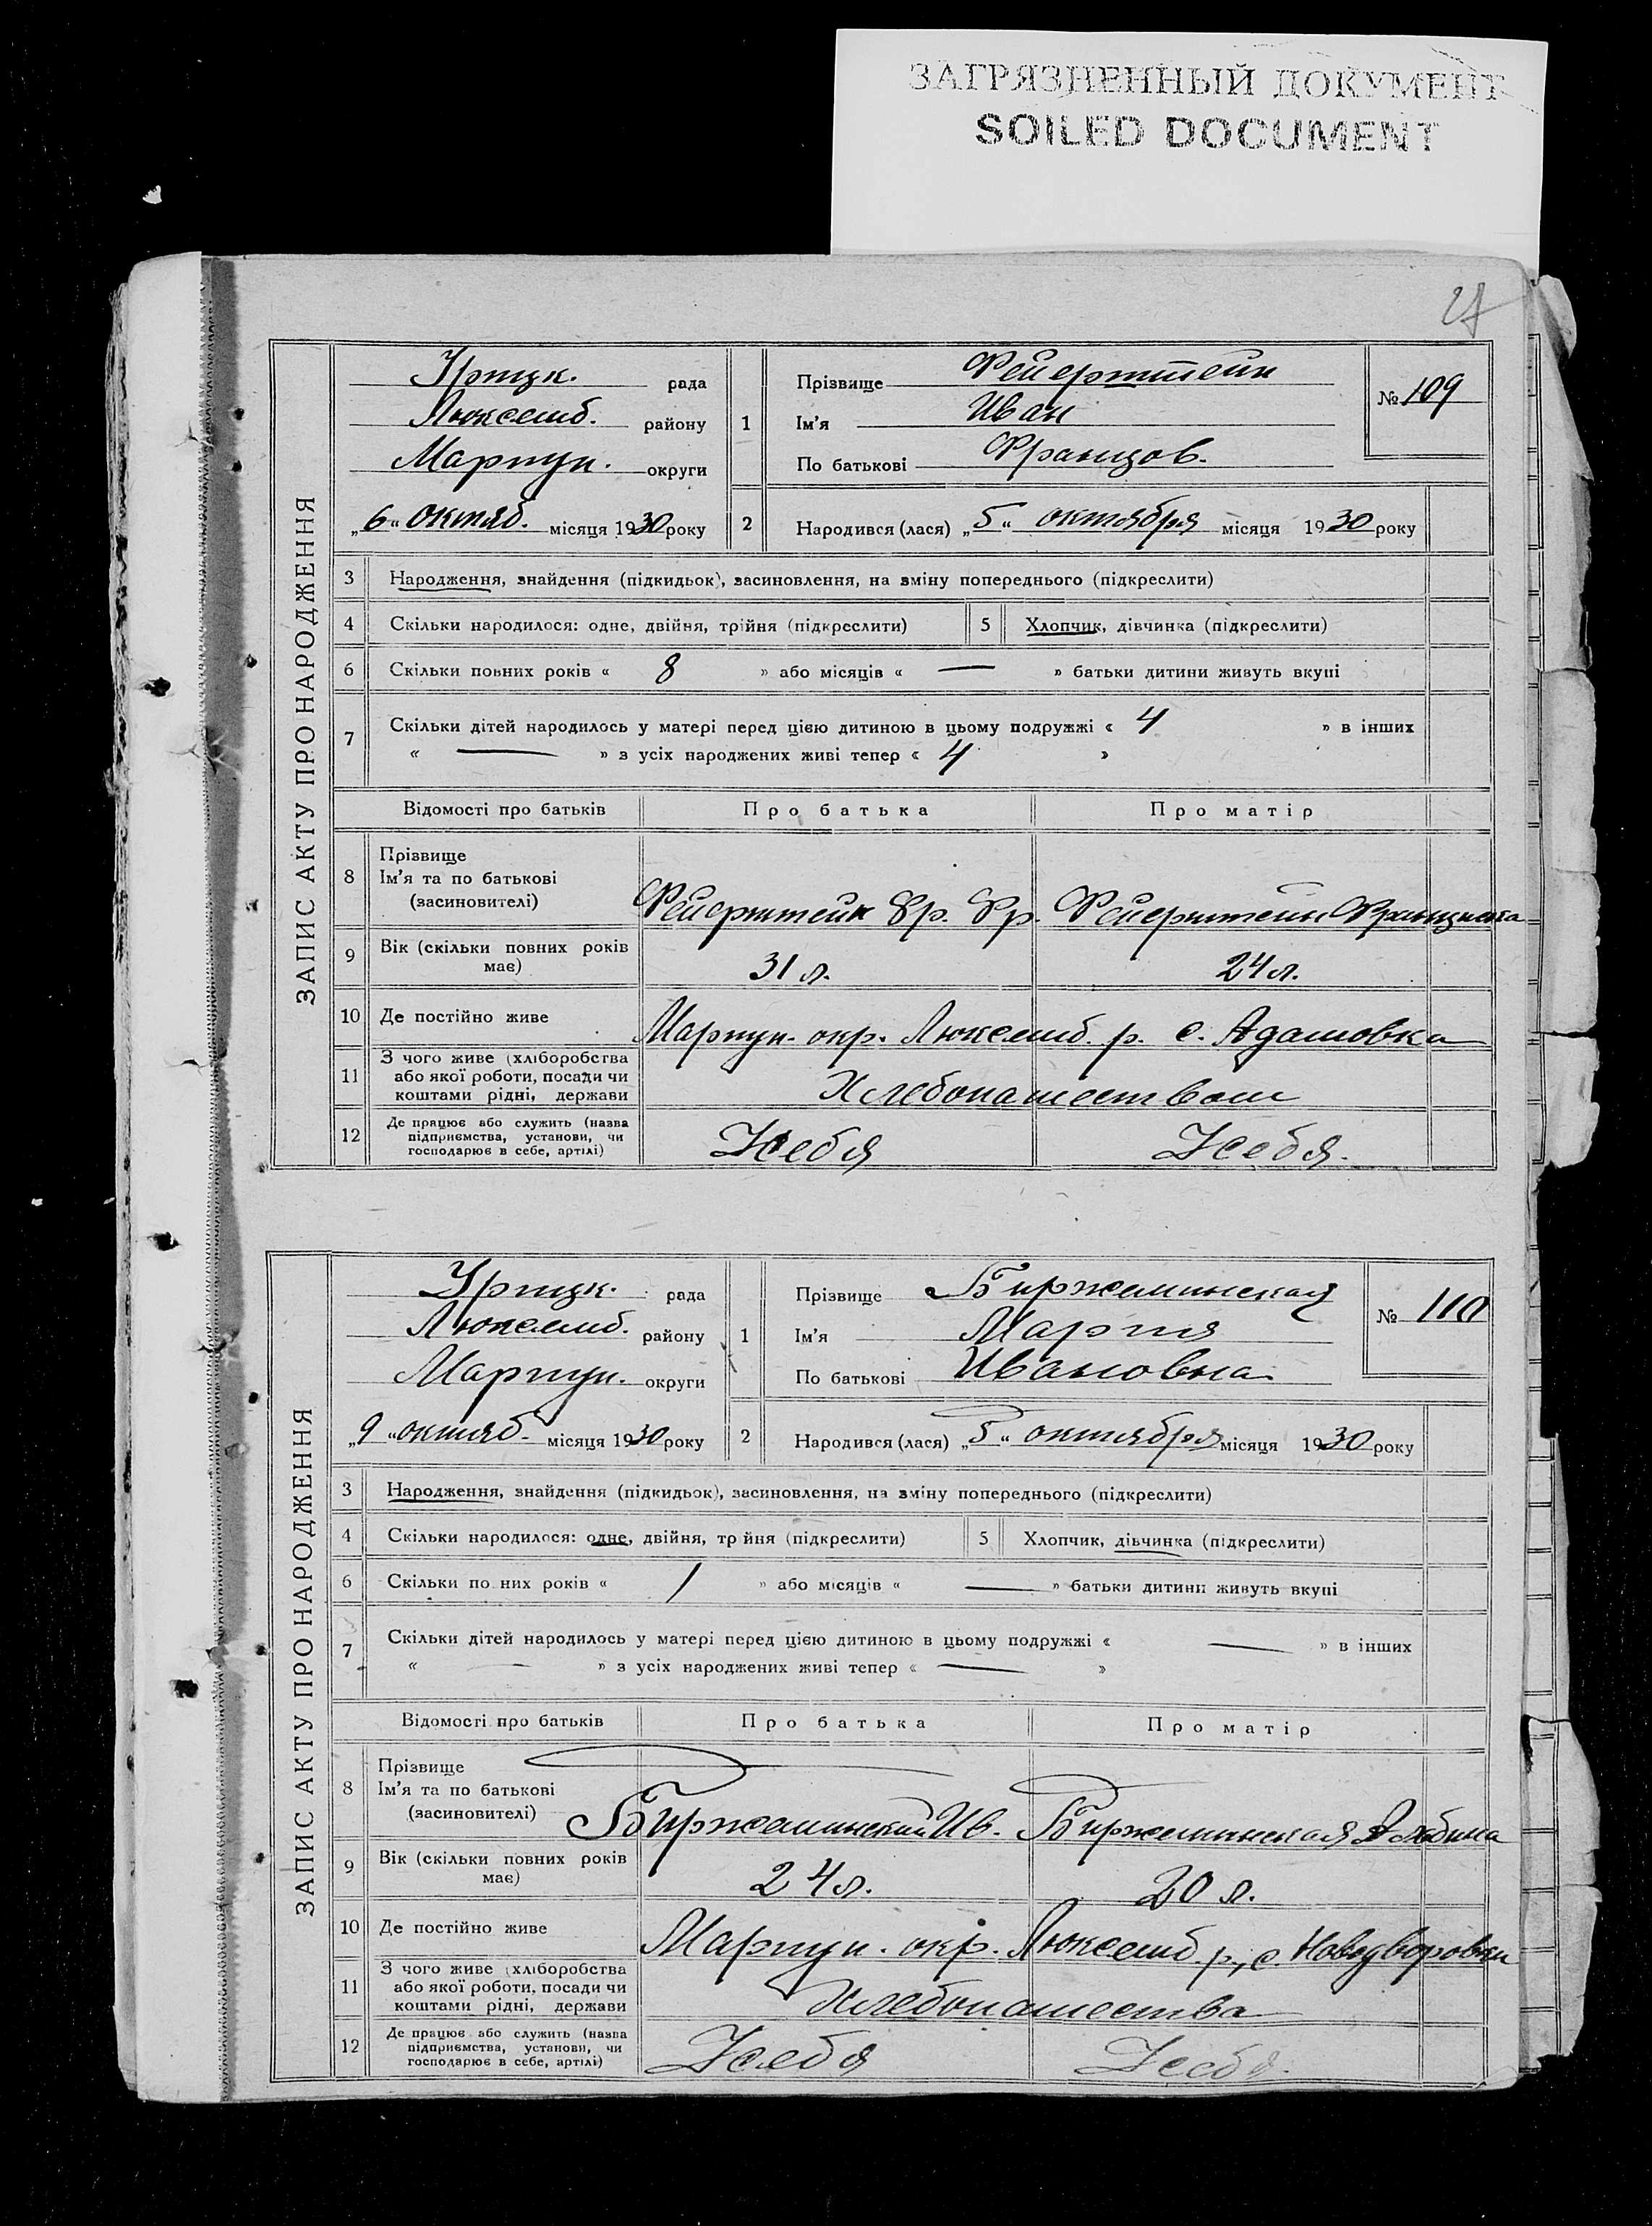 ЗАГРЯЗНЕННЫЙ ДОКУМЕНТ
SOILED DOCUMENT
27
ЗАПИС АКТУ ПРО НАРОДЖЕННЯ
Урицк. рада
Люксемб. району
Мариуп. округи
„6“ октяб. місяця 1930 року
1 Прізвище Фейерштейн
Ім'я Иван
По батькові Францов.
№ 109
2 Народився (лася) „5“ октября місяця 1930 року
3 Народження, знайдення (підкидьок), засиновлення, на зміну попереднього (підкреслити)
4 Скільки народилося: одне, двійня, трійня (підкреслити) 5 Хлопчик, дівчинка (підкреслити)
6 Скільки повних років « 8 » або місяців « — » батьки дитини живуть вкупі
7 Скільки дітей народилось у матері перед цією дитиною в цьому подружжі « 4 » в інших
« — » з усіх народжених живі тепер « 4 »
Відомості про батьків Про батька Про матір
8 Прізвище
Ім'я та по батькові
(засиновителі)
Фейерштейн Фр. Фр. Фейерштейн Франциска
9 Вік (скільки повних років
має)
31 л. 24 л.
10 Де постійно живе Мариуп. окр. Люксемб. р. с. Адамовка
11 З чого живе (хліборобства
або якої роботи, посади чи
коштами рідні, держави
Хлебопашеством
12 Де працює або служить (назва
підприємства, установи, чи
господарює в себе, артілі)
У себя У себя.
ЗАПИС АКТУ ПРО НАРОДЖЕННЯ
Урицк. рада
Люксемб. району
Мариуп. округи
„9“ октяб. місяця 1930 року
1 Прізвище Биржеминская
Ім'я Мария
По батькові Ивановна
№ 110
2 Народився (лася) „5“ октября місяця 1930 року
3 Народження, знайдення (підкидьок), засиновлення, на зміну попереднього (підкреслити)
4 Скільки народилося: одне, двійня, трійня (підкреслити) 5 Хлопчик, дівчинка (підкреслити)
6 Скільки повних років « 1 » або місяців « — » батьки дитини живуть вкупі
7 Скільки дітей народилось у матері перед цією дитиною в цьому подружжі « — » в інших
« — » з усіх народжених живі тепер « — »
Відомості про батьків Про батька Про матір
8 Прізвище
Ім'я та по батькові
(засиновителі)
Биржеминский Ив. Биржеминская Альбина
9 Вік (скільки повних років
має)
24 л. 20 л.
10 Де постійно живе Мариуп. окр. Люксемб. р., с. Новодворовка
11 З чого живе (хліборобства
або якої роботи, посади чи
коштами рідні, держави
Хлебопашества
12 Де працює або служить (назва
підприємства, установи, чи
господарює в себе, артілі)
У себя У себя.